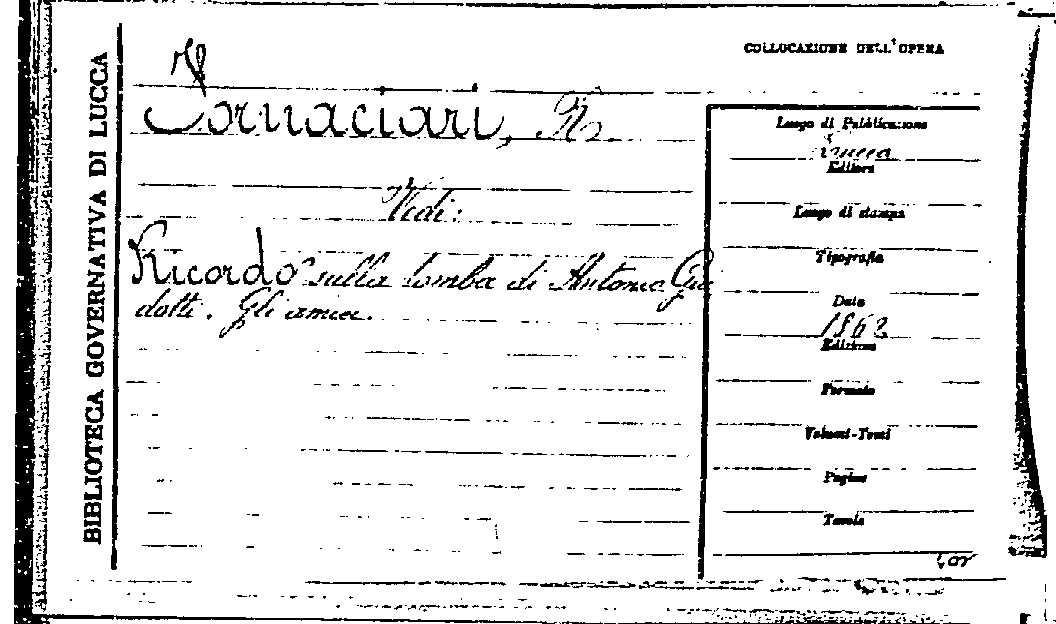 BIBLIOTECA GOVERNATIVA DI LUCCA
COLLOCAZIONE DELL'OPERA
Fornaciari, R.
Vedi:
Ricordo sulla tomba di Antonio Gui
dotti. Gli amici.
Luogo di Pubblicazione
Lucca
Editore
Luogo di stampa
Tipografia
Data
1862
Edizione
Formato
Volumi-Tomi
Pagine
Tavole